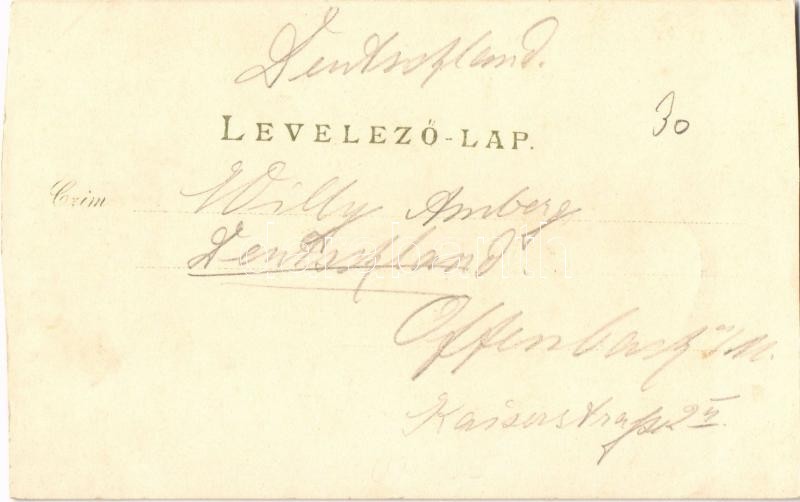 Deutschland.
LEVELEZŐ-LAP.
30
Czim
Willy Amberg
Deutschland
Offenbach a/M.
Kaiserstraße